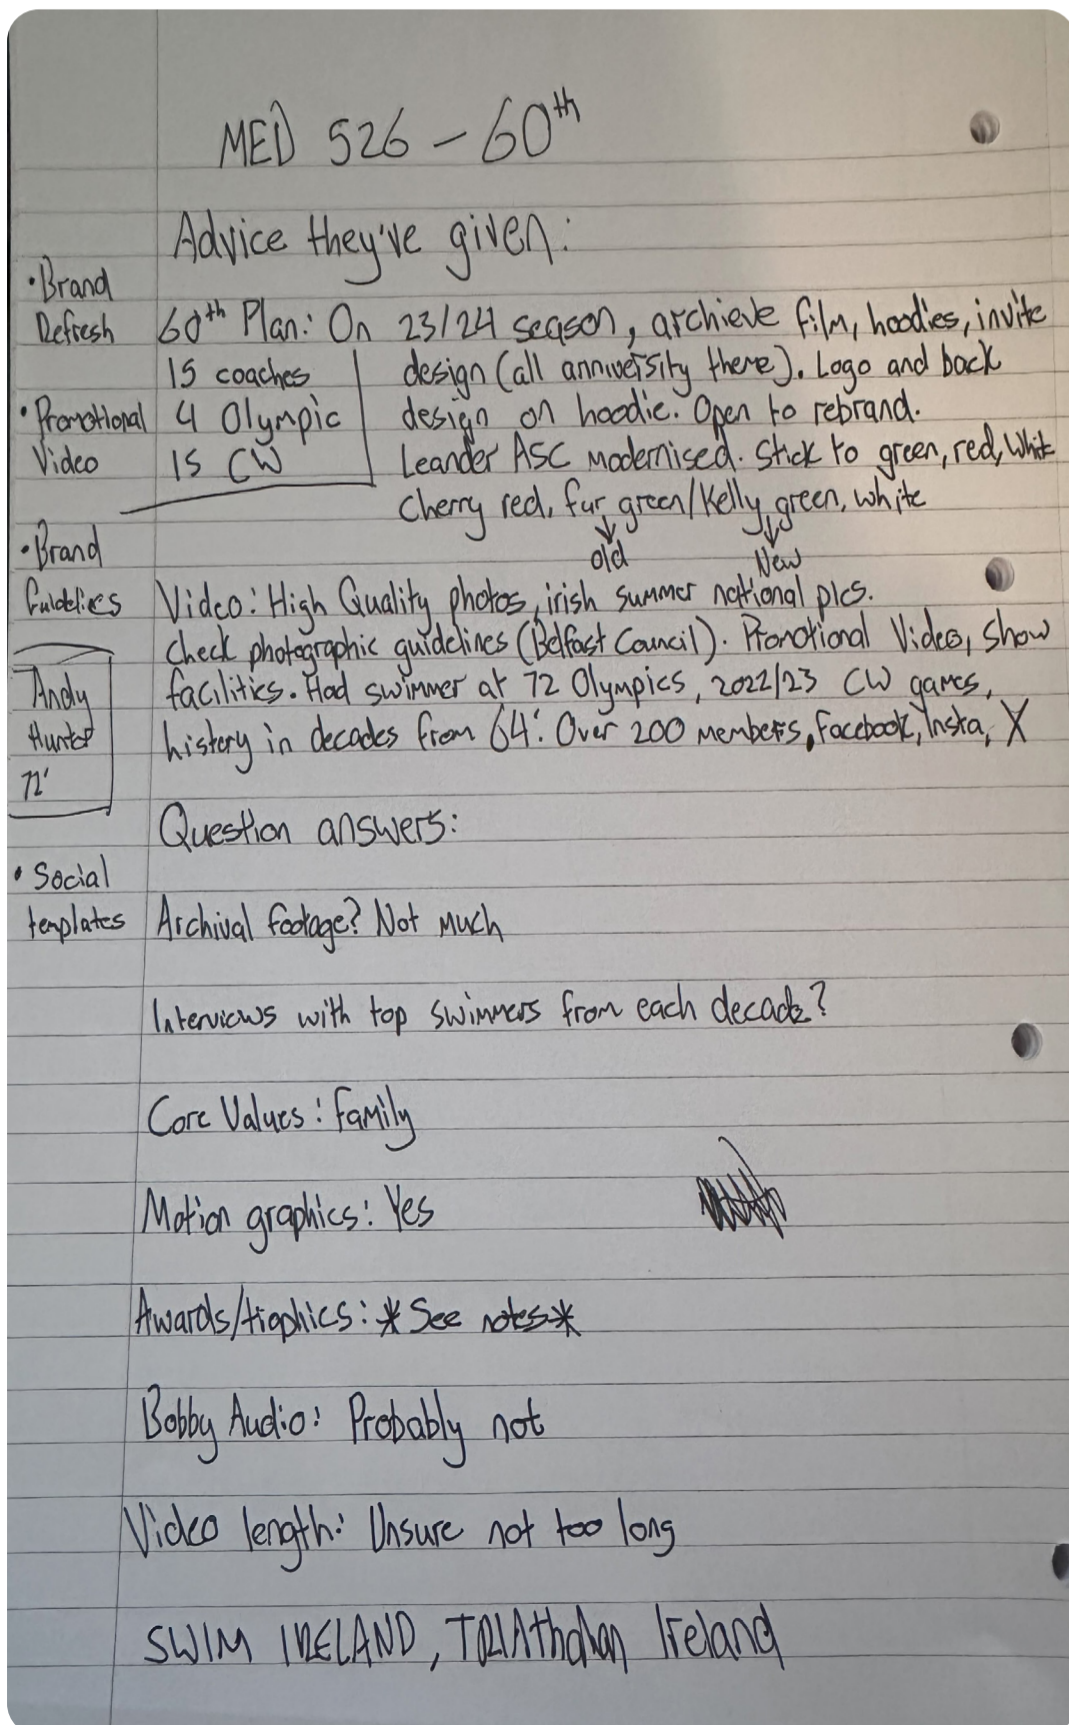 MED 526 - 60th
Advice they've given:
• Brand
Refresh
60th Plan: On 23/24 season, archieve film, hoodies, invite
15 coaches
design (all anniversity there). Logo and back
• Promotional
4 Olympic
design on hoodie. Open to rebrand.
Video
15 CW
Leander ASC modernised. Stick to green, red, white
Cherry red, fur green/Kelly green, white
old
New
• Brand
Guidelines
Video: High Quality photos, irish summer national pics.
Check photographic guidelines (Belfast Council). Promotional Video, show
facilities. Had swimmer at 72 Olympics, 2022/23 CW games,
history in decades from 64'. Over 200 members, Facebook, Insta, X
Andy
Hunter
72'
Question answers:
• Social
templates
Archival footage? Not much
Interviews with top swimmers from each decade?
Core Values: Family
Motion graphics: Yes
Awards/trophies: *See notes*
Bobby Audio: Probably not
Video length: Unsure not too long
SWIM IRELAND, TRIAthalon Ireland